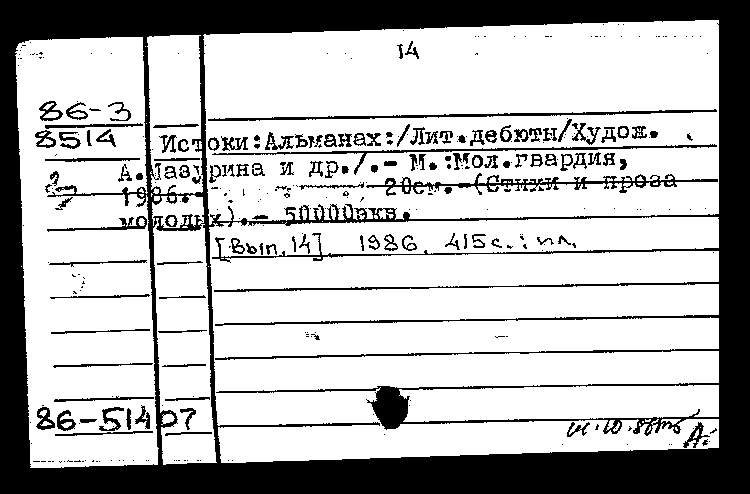 14
86-3
8514
Истоки:Альманах:/Лит.дебюты/Худож.
А.Мазурина и др./.- М.:Мол.гвардия,
1986.- 20см.-(Стихи и проза
молодых).- 50000экз.
[Вып.14] 1986. 415с.: ил.
86-51407